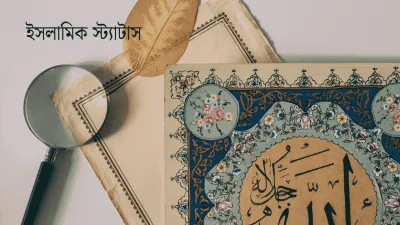 ইসলামিক স্ট্যাটাস
الله
جل جلاله